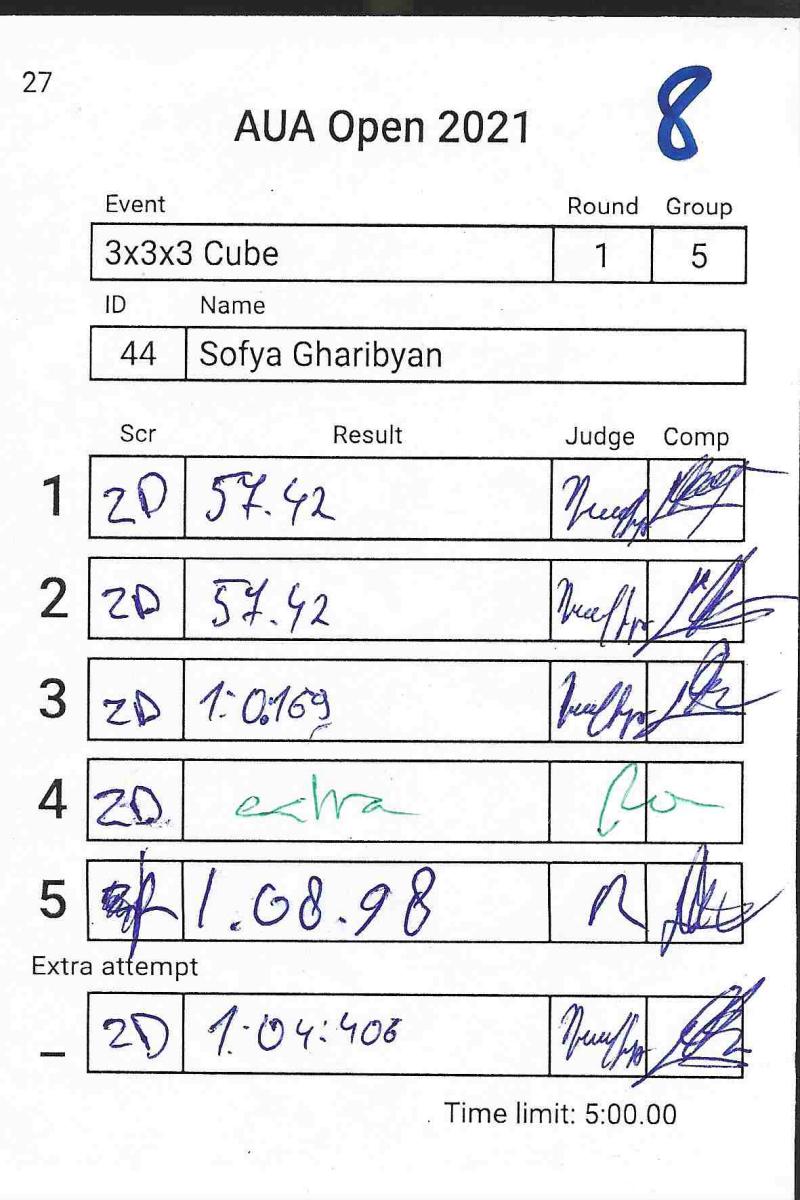 27
8
AUA Open 2021
Event Round Group
3x3x3 Cube 1 5
ID Name
44 Sofya Gharibyan
Scr Result Judge Comp
1 ZD 57.42
2 ZD 57.42
3 ZD 1:0.169
4 ZD extra
5 1.08.98
Extra attempt
_ ZD 1:04:406
Time limit: 5:00.00